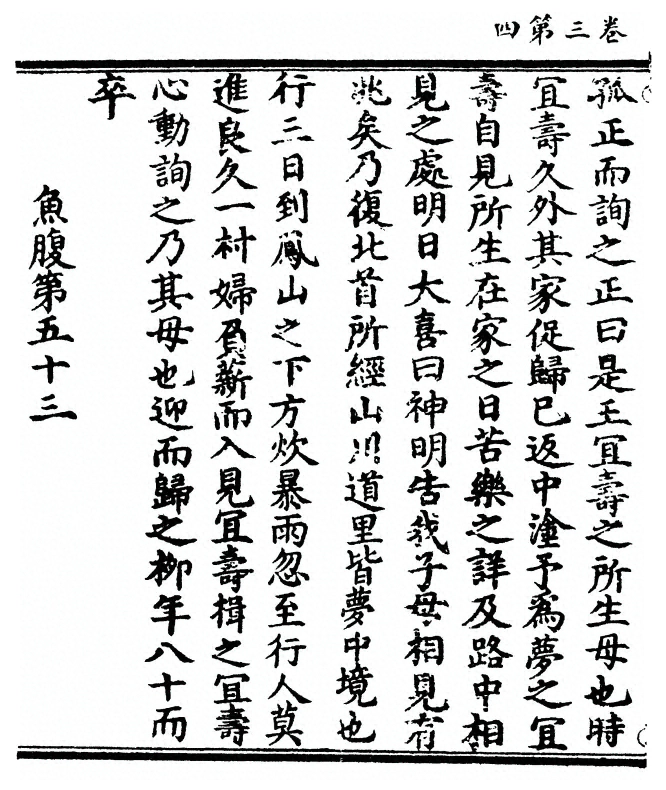 卷三第四
孤正而詢之正曰是王宜壽之所生母也時
冝壽久外其家促歸已返中塗予爲夢之冝
壽自見所生在家之日苦樂之詳及路中相
見之處明日大喜曰神明告我子母相見有
兆矣乃復北首所經山川道里皆夢中境也
行三日到鳳山之下方炊暴雨忽至行人莫
進良久一村婦負薪而入見冝壽揖之冝壽
心動詢之乃其母也迎而歸之柳年八十而
卒
魚腹第五十三